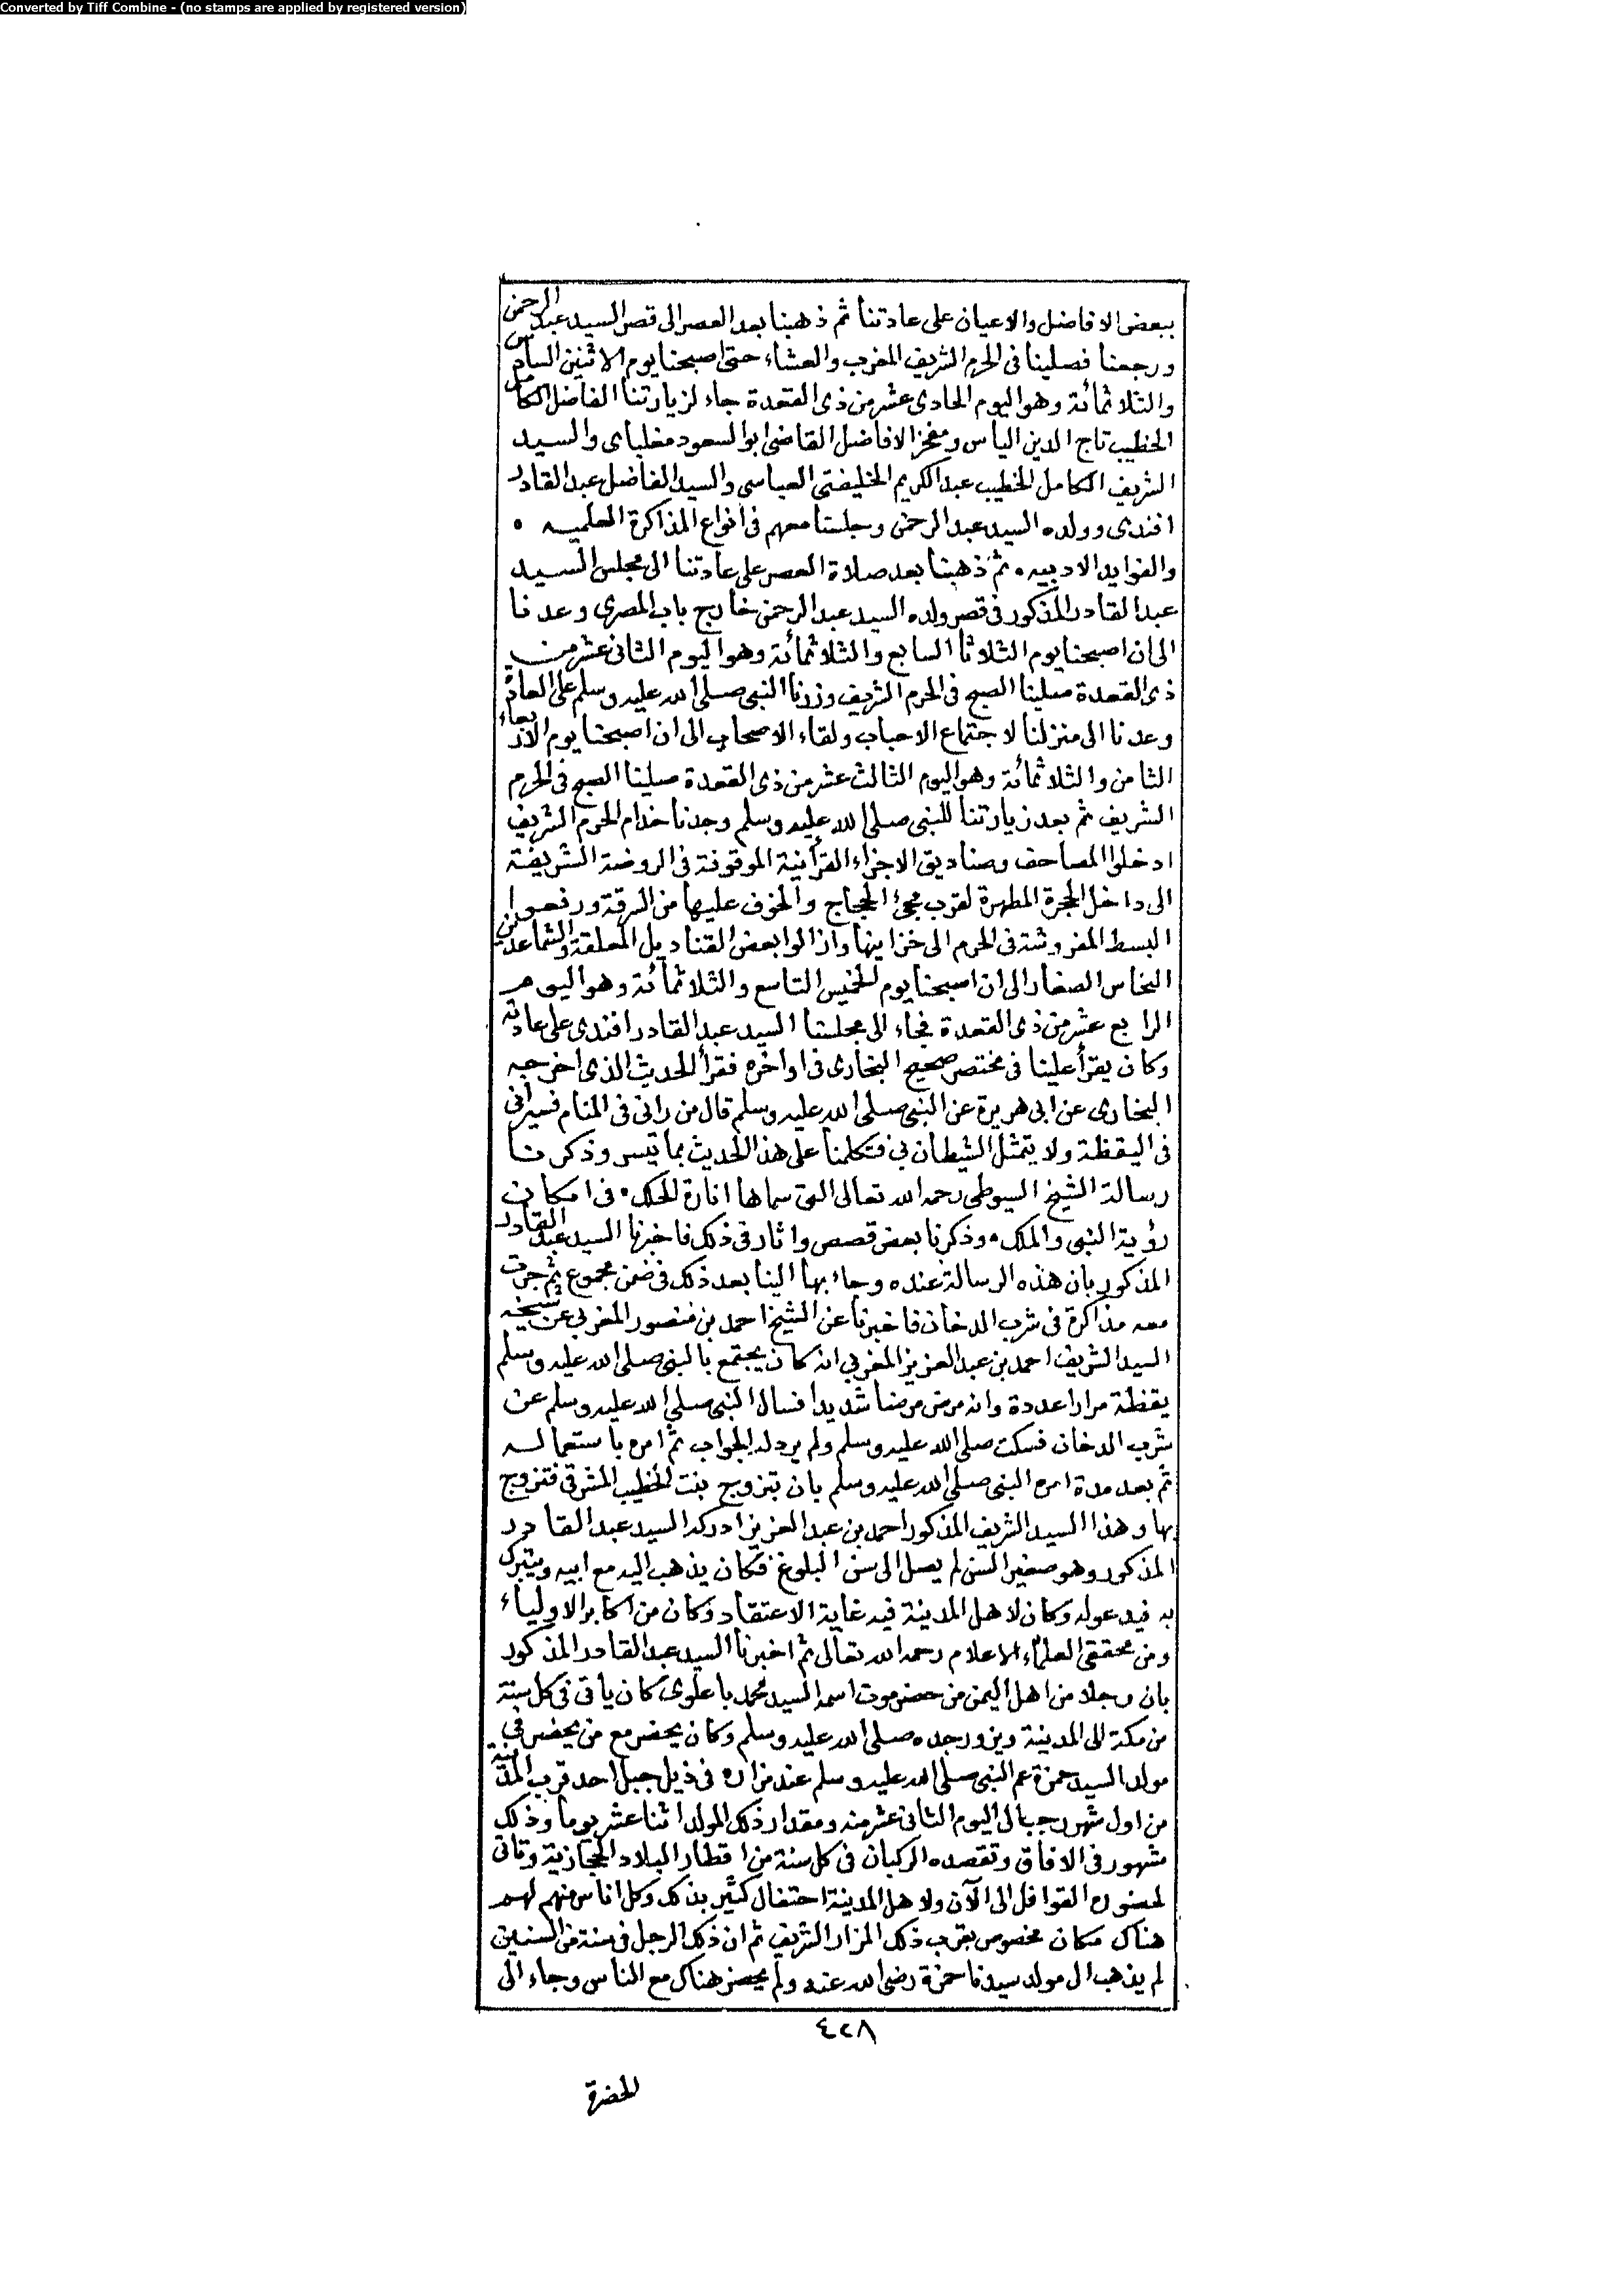 Converted by Tiff Combine - (no stamps are applied by registered version)
ببعض الافاضل والاعيان على عادتنا ثم ذهبنا بعد العصر الى قصر السيد عبد الرحمن
ورجعنا فصلينا فى الحرم الشريف المغرب والعشاء حتى اصبحنا يوم الاثنين السادس
والثلاثمائة وهو اليوم الحادى عشر من ذى القعدة جاء لزيارتنا الفاضل الكامل
الخطيب تاج الدين الياس ومفخر الافاضل القاضى ابو السعود مغلباى والسيد
الشريف الكامل الخطيب عبد الكريم الخليفتى العباسى والسيد الفاضل عبد القادر
افندى وولده السيد عبد الرحمن وجلسنا معهم فى انواع المذاكرة العلميه •
والفوايد الادبيه • ثم ذهبنا بعد صلاة العصر على عادتنا الى مجلس السيد
عبد القادر المذكور فى قصر ولده السيد عبد الرحمن خارج باب المصرى وعدنا
الى ان اصبحنا يوم الثلاثا السابع والثلاثمائة وهو اليوم الثانى عشر من
ذى القعدة صلينا الصبح فى الحرم الشريف وزرنا النبى صلى الله عليه وسلم على العادة
وعدنا الى منزلنا لاجتماع الاحباب ولقاء الاصحاب الى ان اصبحنا يوم الاربعاء
الثامن والثلاثمائة وهو اليوم الثالث عشر من ذى القعدة صلينا الصبح فى الحرم
الشريف ثم بعد زيارتنا للنبى صلى الله عليه وسلم وجدنا خدام الحرم الشريف
ادخلوا المصاحف وصناديق الاجزاء القرآنية الموقوفة فى الروضة الشريفة
الى داخل الحجرة المطهرة لقرب مجئ الحجاج والخوف عليها من السرقة ورفعوا
البسط المفروشة فى الحرم الى خزاينها وازالوا بعض القناديل المعلقة والشماعدين
النحاس الصغار الى ان اصبحنا يوم الخميس التاسع والثلاثمائة وهو اليوم
الرابع عشر من ذى القعدة فجاء الى مجلسنا السيد عبد القادر افندى على عادته
وكان يقرأ علينا فى مختصر صحيح البخارى فى اواخره فقرأ الحديث الذى اخرجه
البخارى عن ابى هريرة عن النبى صلى الله عليه وسلم قال من رانى فى المنام فسيرانى
فى اليقظة ولا يتمثل الشيطان بى فتكلمنا على هذا الحديث بما تيسر وذكرنا
رسالة الشيخ السيوطى رحمه الله تعالى التى سماها انارة الحلك • فى امكان
رؤية النبى والملك • وذكرنا بعض قصص واثار فى ذلك فاخبرنا السيد عبد القادر
المذكور بان هذه الرسالة عنده وجاء بها الينا بعد ذلك فى ضمن مجموع ثم جرت
معه مذاكرة فى شرب الدخان فاخبرنا عن الشيخ احمد بن منصور المغربى عن شيخه
السيد الشريف احمد بن عبد العزيز المغربى انه كان يجتمع بالنبى صلى الله عليه وسلم
يقظة مرارا عددة وانه مرض مرضا شديدا فسال النبى صلى الله عليه وسلم عن
شرب الدخان فسكت صلى الله عليه وسلم ولم يرد له الجواب ثم امره باستعماله
ثم بعد مدة امره النبى صلى الله عليه وسلم بان تتزوج بنت الخطيب المشرقى فتزوج
بها وهذا السيد الشريف المذكور احمد بن عبد العزيز ادركه السيد عبد القادر
المذكور وهو صغير السن لم يصل الى سن البلوغ فكان يذهب اليه مع ابيه ويتبرك
به فيدعوله وكان لاهل المدينة فيه غاية الاعتقاد وكان من اكابر الاولياء
ومن محققى العلماء الاعلام رحمه الله تعالى ثم اخبرنا السيد عبد القادر المذكور
بان رجلا من اهل اليمن من حضرموت اسمه السيد محمد باعلوى كان ياتى فى كل سنة
من مكة الى المدينة ويزور جده صلى الله عليه وسلم وكان يحضر مع من يحضر فى
مولد السيد حمزة عم النبى صلى الله عليه وسلم عند مزاره فى ذيل جبل احد قرب المدينة
من اول شهر رجب الى اليوم الثانى عشر منه ومقدار ذلك المولد اثنا عشر يوما وذلك
مشهور فى الافاق وتقصده الركبان فى كل سنة من اقطار البلاد الحجازية وتاتى
لحضوره القوافل الى الآن ولاهل المدينة احتفال كثير بذلك وكل اناس منهم لهم
هناك مكان مخصوص بقرب ذلك المزار الشريف ثم ان ذلك الرجل فى سنة من السنين
لم يذهب الى مولد سيدنا حمزة رضى الله عنه ولم يحضر هناك مع الناس وجاء الى
٤٢٨
الحضرة